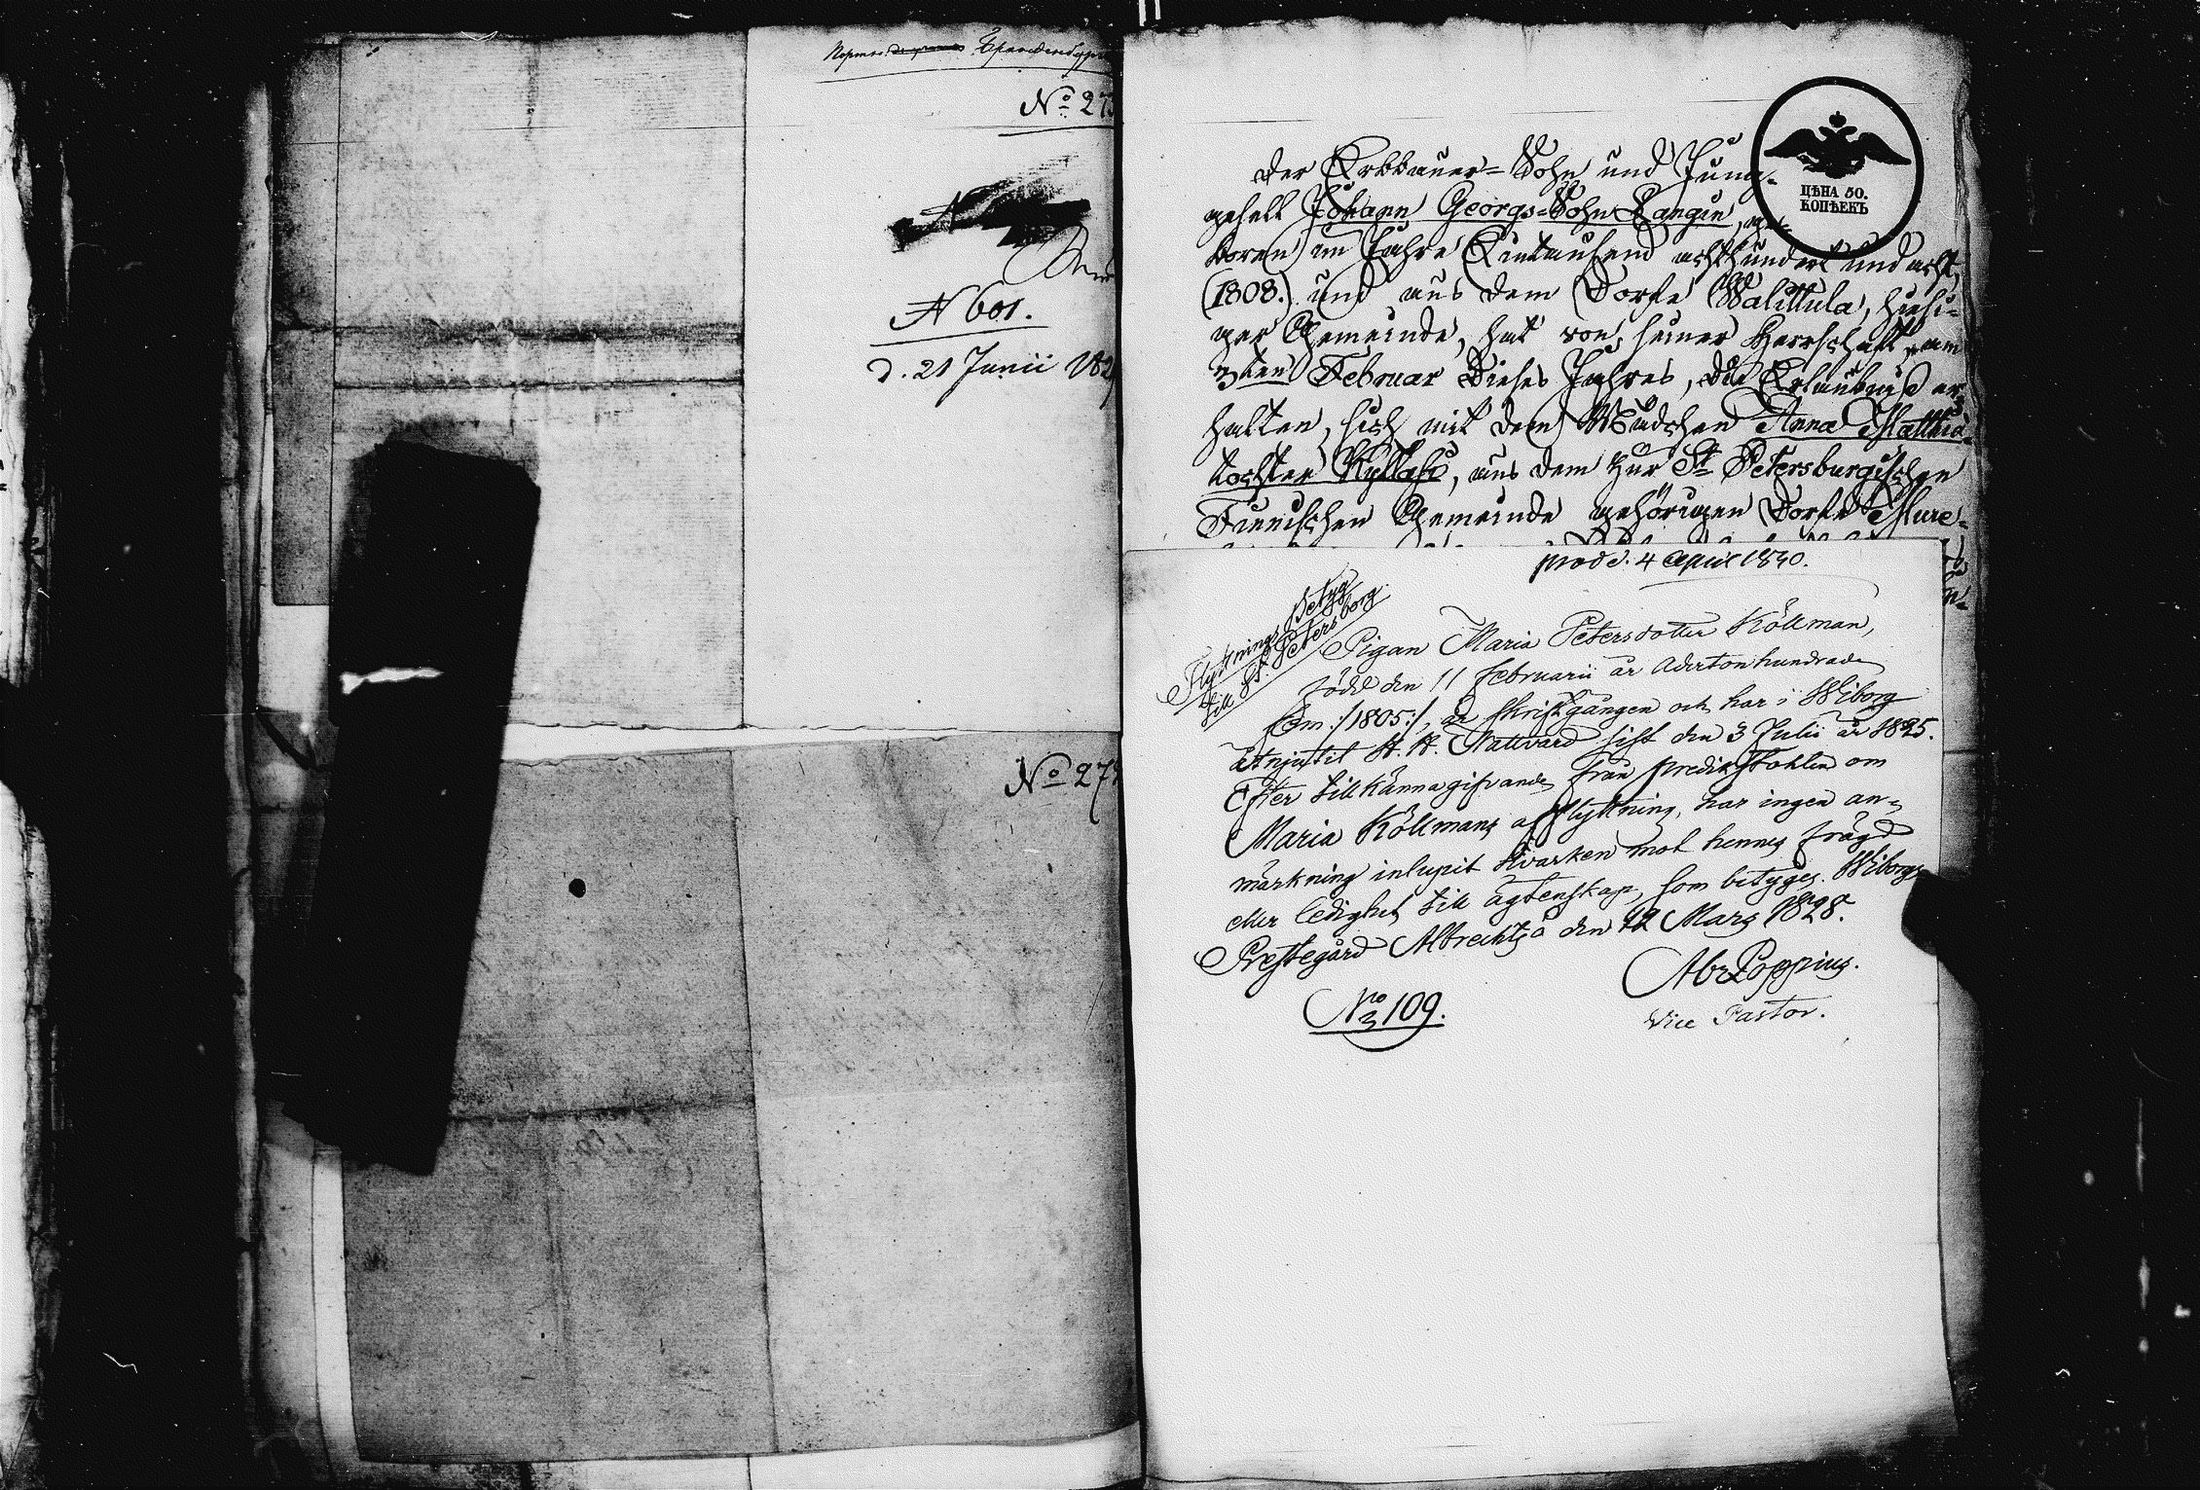 Бранденбургъ
No 27
N 601.
d. 21 Junii 182
No 27
ЦѢНА 50.
КОПѢЕКЪ
Der Erbbauer=Sohn und Jung-
gesell Johann Georgs=Sohn Rangin, ge-
boren im Jahre Eintausend achthundert und acht,
(1808.) und aus dem Dorfe Walittula, hiesi-
ger Gemeinde, hat von seiner Herrschaft am
Februar dieses Jahres, die Erlaubniß er-
halten, sich mit dem Mädchen Anna Matthia-
tochter Kyllästö, aus dem zur St. Petersburgischen
Finnischen Gemeinde gehörigen Dorfe
prod d. 4 April 1830.
Flyttnings Betyg
till St. Petersborg
Pigan Maria Petersdotter Köllman,
född den 11 Februarii år Adertonhundrade
fem :/1805:/, är skriftgången och har i Wiborg
åtnjutit H. H. Nattvard sist den 3 Julii år 1825.
Efter tillkännagifvande från predikstohlen om
Maria Köllmans afflyttning, har ingen an-
märkning inlupit hvarken mot hennes frägd
eller ledighet till ägtenskap, som betyges. Wiborgs
Prestegård Albrechtså den 12 Mars 1828.
Abr Poppius.
Vice Pastor.
No 109.